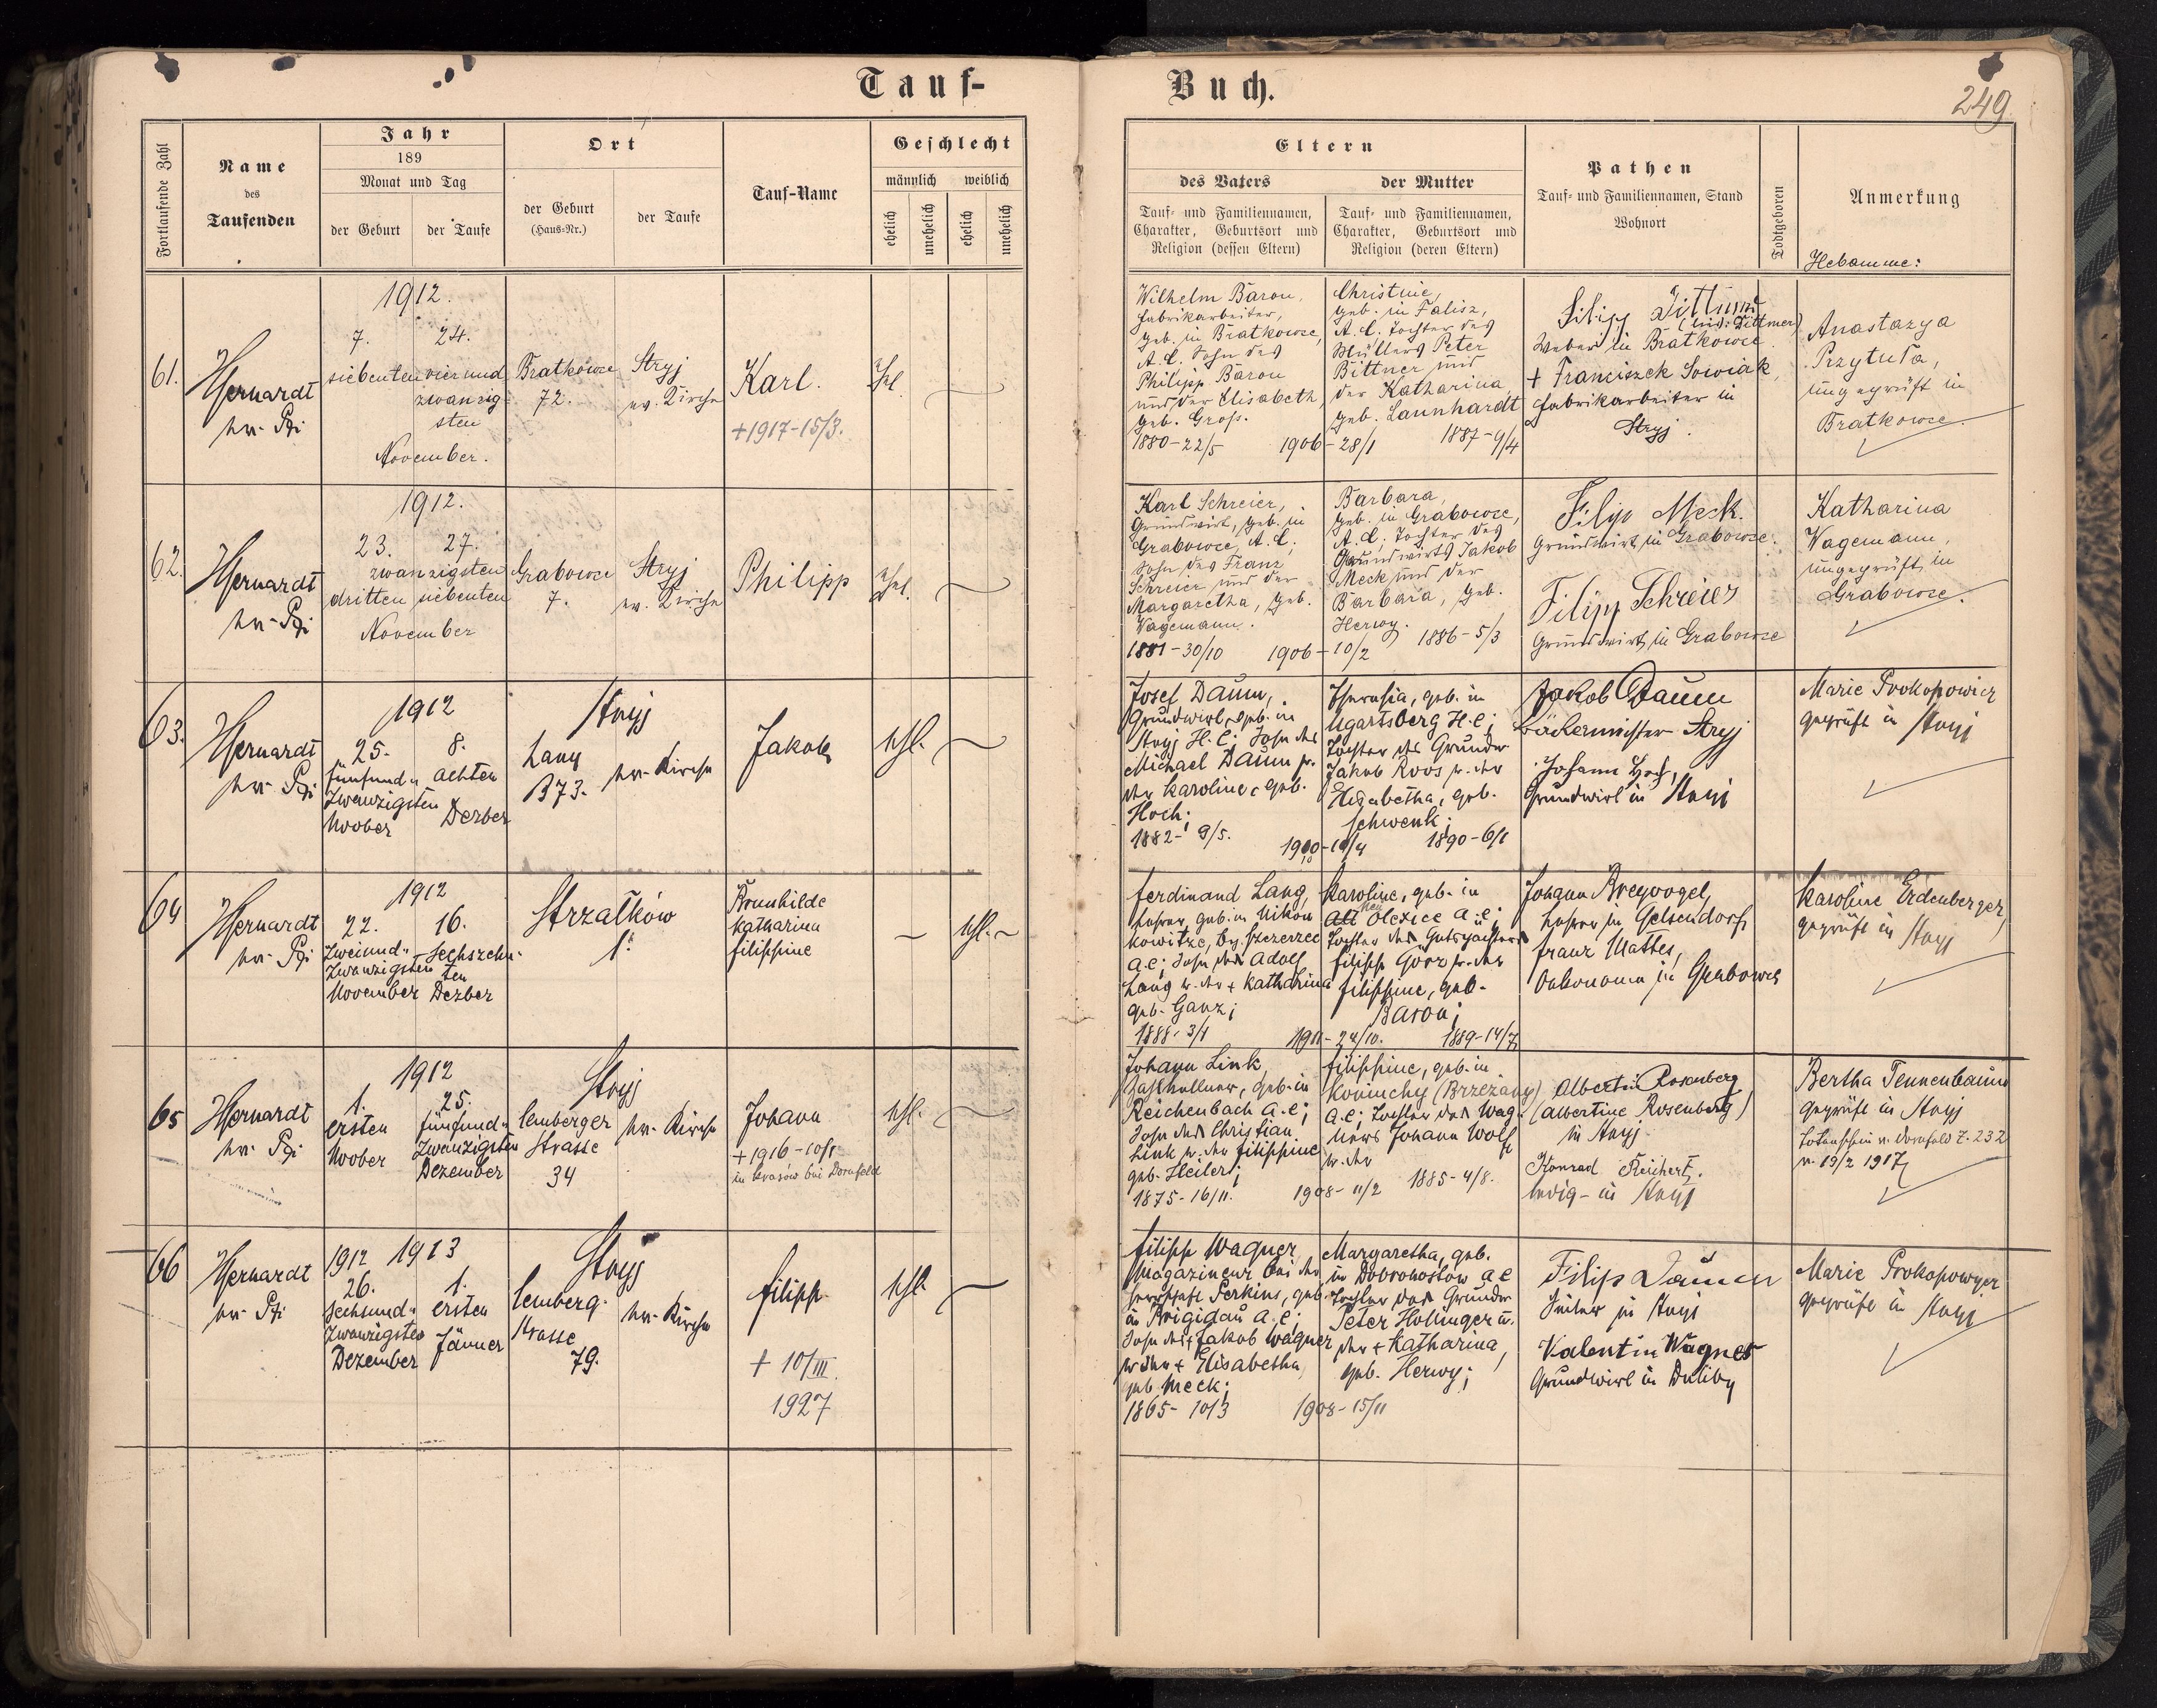 Tauf-
Buch.
249
Fortlaufende Zahl
Name
des
Taufenden
Jahr
189
Monat und Tag
der Geburt
der Taufe
Ort
der Geburt
(Haus-Nr.)
der Taufe
Tauf-Name
Geschlecht
männlich
weiblich
ehelich
unehelich
ehelich
unehelich
Eltern
des Vaters
der Mutter
Tauf- und Familiennamen,
Charakter, Geburtsort und
Religion (dessen Eltern)
Tauf- und Familiennamen,
Charakter, Geburtsort und
Religion (deren Eltern)
Pathen
Tauf- und Familiennamen, Stand
Wohnort
Todtgeboren
Anmerkung
Hebamme:
61.
1912.
7.
24.
siebenten
vierund
zwanzig-
sten
November.
Bratkowce
72.
Stryj
ev. Kirche
Karl.
+1917-15/3.
Ehl
Wilhelm Baron,
Fabrikarbeiter,
geb. in Bratkowce,
A.C. Sohn des
Philipp Baron
und der Elisabeth,
geb. Groß.
1880-22/5
1906-28/1
Christine,
geb. in Falisz,
A.C. Tochter des
Müllers Peter
Bittner und
der Katharina
geb. Launhardt
1887-9/4
Weber in Bratkowce
+ Franciszek Sowiak,
Fabrikarbeiter in
Stryj.
Anastazya
Przytuła,
ungeprüft in
Bratkowce.
62.
1912.
23.
27.
zwanzigsten
dritten
siebenten
November
Grabowce
7.
Stryj
ev. Kirche
Philipp
Ehel.
Karl Schreier,
Grundwirt, geb. in
Grabowce, A.C.;
Sohn des Franz
Schreier und der
Margaretha, geb.
Wagemann.
1881-30/10
1906-10/2
Barbara,
geb. in Grabowce,
A.C; Tochter des
Grundwirts Jakob
Meck und der
Barbara, geb.
Herwy.
1886-5/3
Filip Meck.
Grundwirt, in Grabowce.
Filipp Schreier
Grundwirt, in Grabowce
Katharina
Wagemann,
ungeprüft, in
Grabowce.
63.
1912
25.
8.
fünfund-
achten
zwanzigsten
Nvober
Dezber
Stryj
Lany
373.
ev. Kirche
Jakob
ehl.
Josef Daum,
Grundwirt, geb. in
Stryj H.C; Sohn des
Michael Daum u.
der Karoline, geb.
Hoch;
1882-9/5.
Theresia, geb. in
Ugartsberg H.C;
Tochter des Grundw
Jakob Roos u. der
Elisabetha, geb.
Schwenk;
1890-6/1
Jakob Daum
Bäckermeister Stryj
Johann Hoch,
Grundwirt in Stryj
Marie Prokopowicz
geprüft in Stryj
64
1912
22.
16.
Zweiund-
Sechszehn-
zwanzigsten
ten
November
Dezber
Strzałków
1.
Brunhilde
Katharina
Filippine
ehl.
Ferdinand Lang,
Lehrer, geb. in Nikon
kowitze, bz. Szczerzec
A.C; Sohn des Adolf
Lang u. der + Katharina
geb. Ganz;
1888-3/1
1911-24/10.
Karoline, geb. in
Neu Olexice A.C;
Tochter des Gutspächters
Filipp Görz u. der
Filippine, geb.
Baron;
1889-14/7
Johann Kreyvogel,
Lehrer in Gelsendorf
Franz Mattes,
Oekonom in Grabowce
Karoline Erdenberger,
geprüft in Stryj
65
1912
1.
25.
ersten
fünfund-
zwanzigsten
Nvober
Dezember
Stryj
Lemberger
Strasse
34
ev. Kirche
Johann
+1916-10/1
in Krasów bei Dornfeld
ehl.
Johann Link,
Zahlkellner, geb. in
Reichenbach A.C;
Sohn des Christian
Link u. der Filippine
geb. Heiler;
1875-16/11.
1908-11/2
Filippine, geb. in
Koniuchy (Brzeżany)
A.C; Tochter des Wag-
ners Johann Wolf
u. der
1885-4/8.
Albertin Rosenberg
(Albertine Rosenberg)
in Stryj.
Konrad Reichert,
ledig - in Stryj
Bertha Tennenbaum
geprüft in Stryj
Totenschein v. Dornfeld Z. 232
v. 19/2 1917
66
1912
1913
26.
1.
Sechsund-
ersten
zwanzigsten
Jänner
Dezember
Stryj
Lemberg.
Strasse
79.
ev. Kirche
Filipp
+ 10/III.
1927
ehl.
Filipp Wagner,
Magazineur bei der
Herrschaft Perkins, geb.
in Brigidau A.C;
Sohn des + Jakob Wagner
u. der + Elisabetha,
geb. Meck;
1865-10/3
1908-15/11
Margaretha, geb.
in Dobrohostow A.C
Tochter des Grundw
Peter Hollinger u.
der + Katharina,
geb. Herwy;
in Stryj
Valentin Wagner
Grundwirt in Duliby
Marie Prokopowycz
geprüft in Stryj